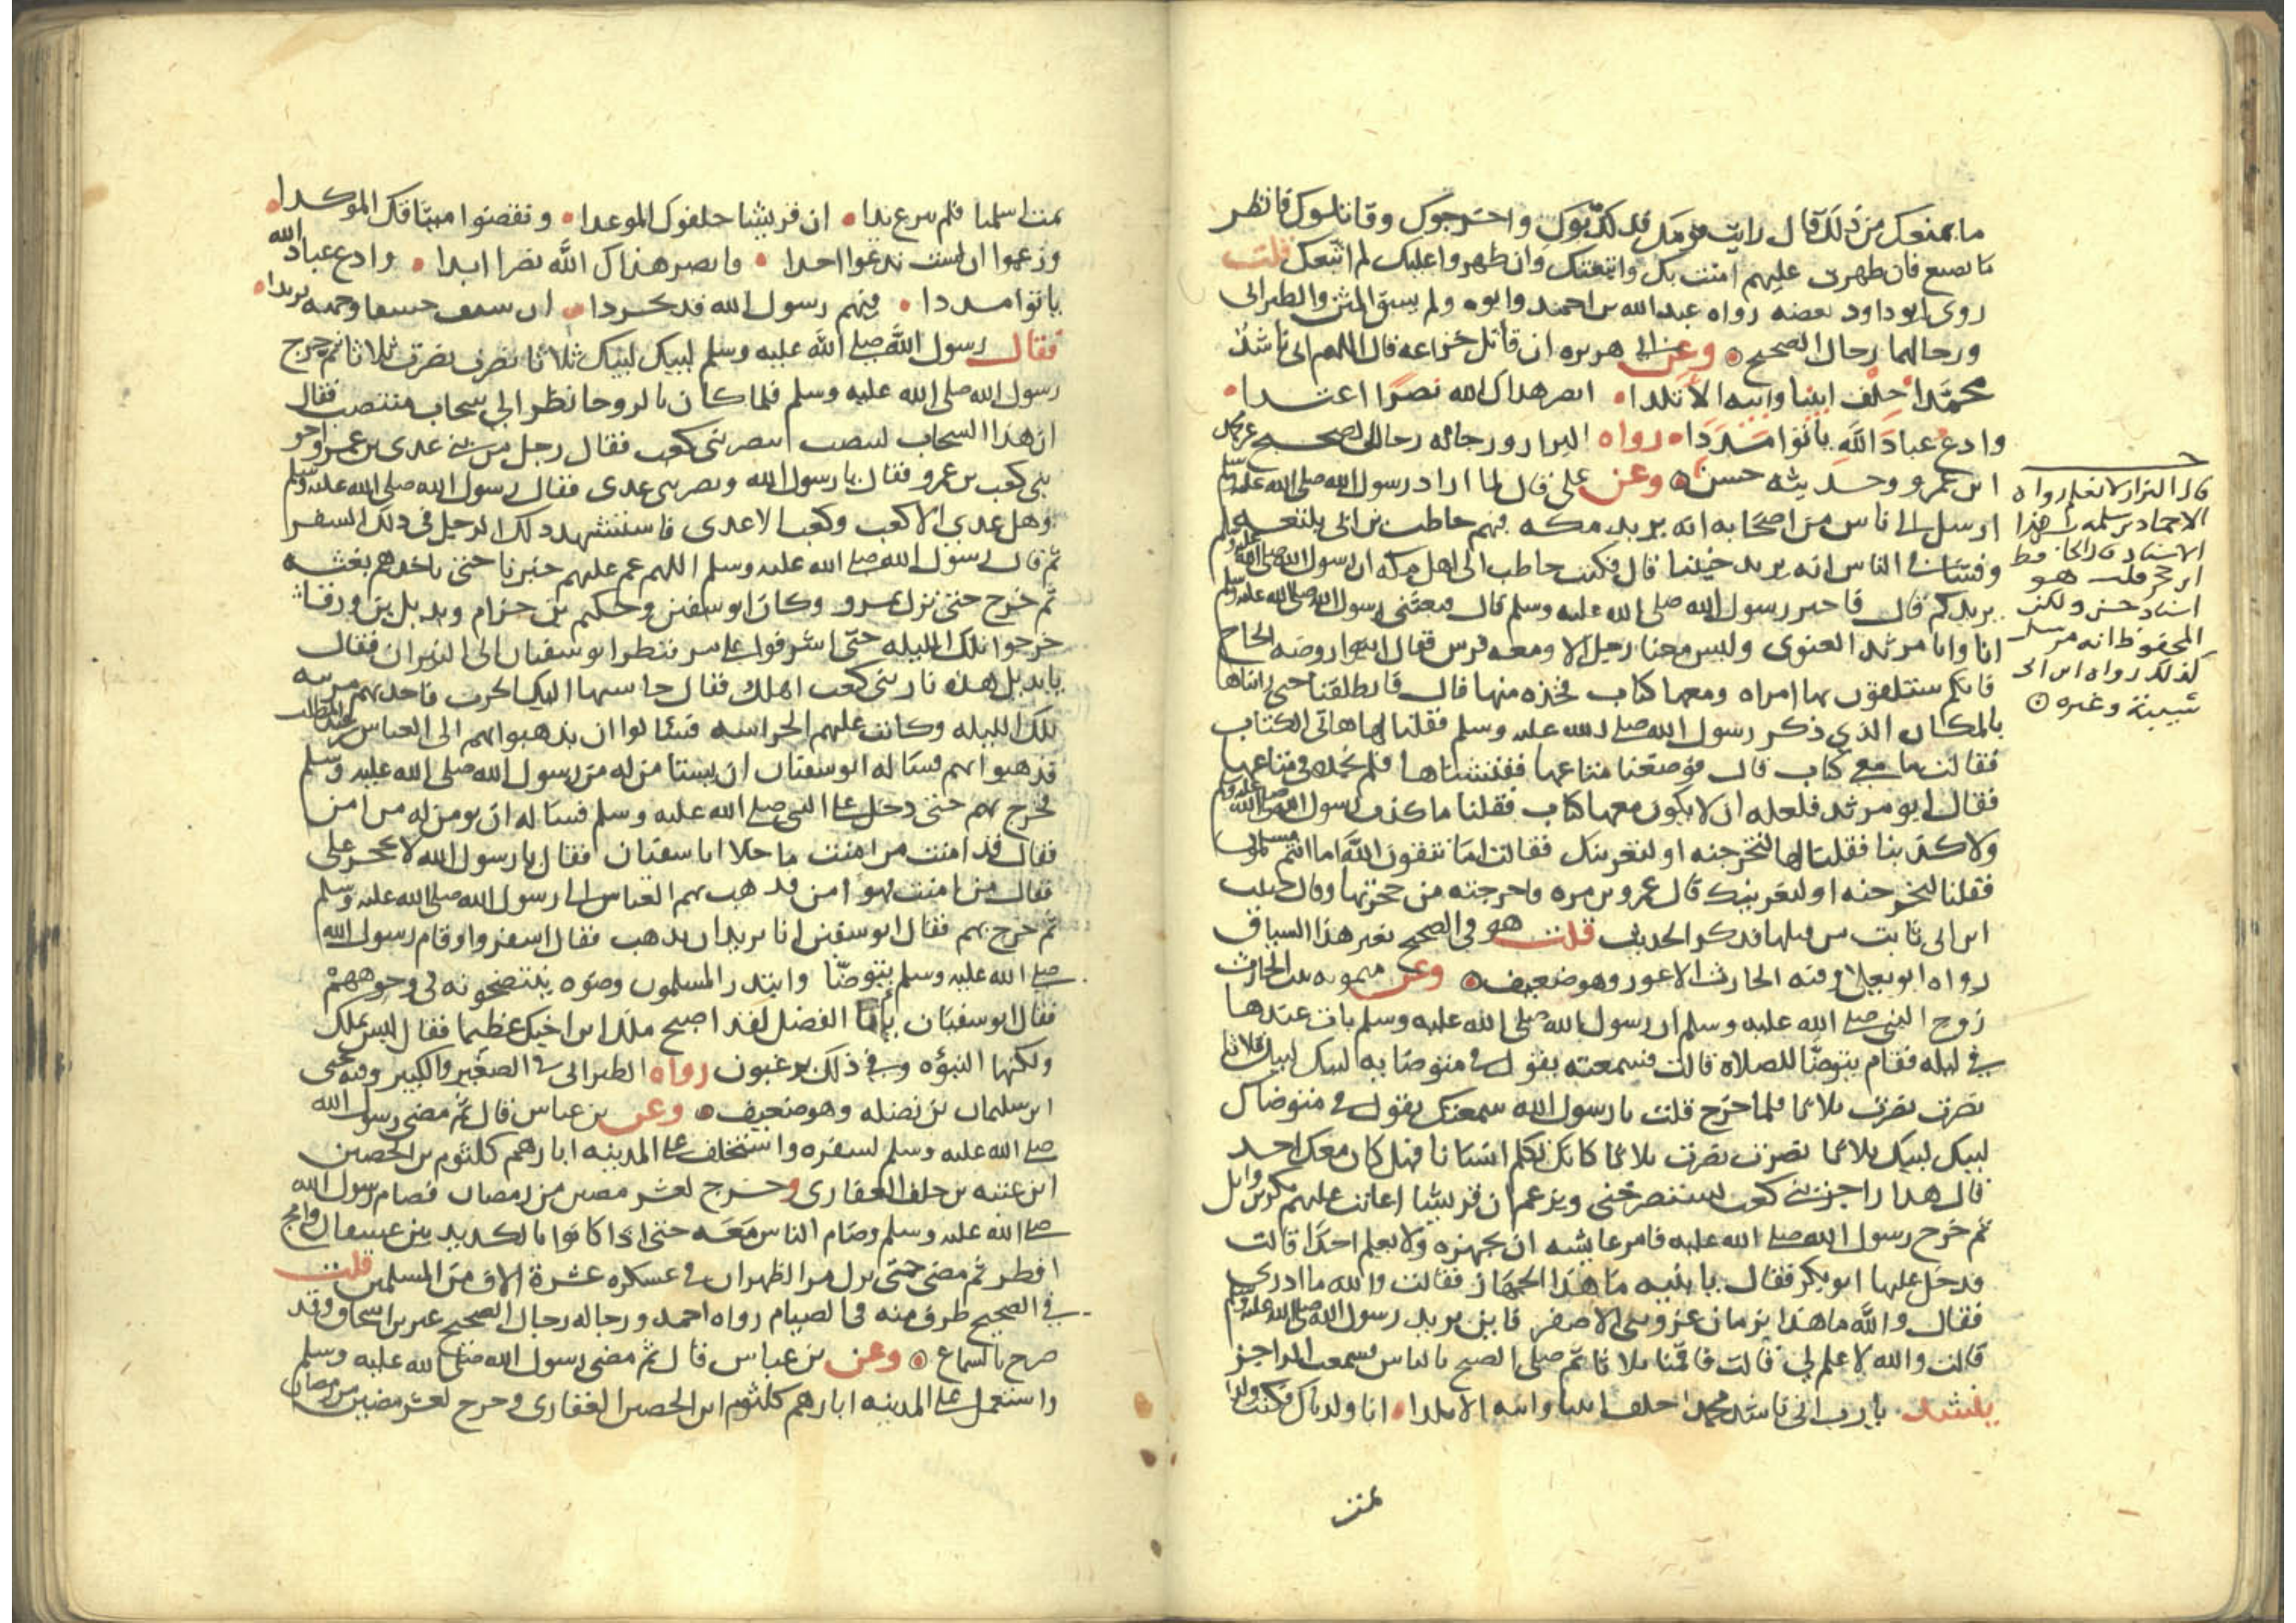 ما يمنعك من ذلك قال رايت قومك قد كذبوك واخرجوك وقاتلوك فانظر
ما تصنع فان ظهرت عليهم امنت بك واتبعتك وان ظهروا عليك لم اتبعك قلت
روى ابو داود بعضه رواه عبد الله بن احمد وابوه ولم يسق المتن والطبراني
ورجالهما رجال الصحيح وعن ابي هريره ان قائل خزاعه قال اللهم اني ناشد
محمدا حلف ابينا وابيه الاتلدا انصر هداك الله نصرا اعتدا
وادع عباد الله ياتوا مددا رواه البزار ورجاله رجال الصحيح غير محمد
ابن عمرو وحديثه حسن وعن علي قال لما اراد رسول الله صلى الله عليه وسلم
ارسل الى ناس من اصحابه انه يريد مكه فيهم حاطب بن ابي بلتعه
وفشا في الناس انه يريد خيبرا قال فكتب حاطب الى اهل مكه ان رسول الله صلى الله عليه وسلم
يريدكم قال فاخبر رسول الله صلى الله عليه وسلم قال فبعثني رسول الله صلى الله عليه وسلم
انا وابا مرثد الغنوي وليس معنا رجل الا ومعه فرس فقال ايتوا روضه الحاج
فانكم ستلقون بها امراه ومعها كتاب فخذوه منها قال فانطلقنا حتى رايناها
بالمكان الذي ذكر رسول الله صلى الله عليه وسلم فقلنا لها هاتي الكتاب
فقالت ما معي كتاب قال فوضعنا متاعها ففتشناها فلم نجده في متاعها
فقال ابو مرثد فلعله ان لا يكون معها كتاب فقلنا ما كذب رسول الله صلى الله عليه وسلم
ولا كذبنا فقلنا لها لتخرجنه او لنعرينك فقالت اما تتقون الله اما انتم مسلمون
فقلنا لتخرجنه او لنعرينك قال عمرو بن مره فاخرجته من حجزتها وقال حبيب
ابن ابي ثابت من قبلها فذكر الحديث قلت هو في الصحيح بغير هذا السياق
رواه ابو يعلى وفيه الحارث الاعور وهو ضعيف وعن ميمونه بنت الحارث
زوج النبي صلى الله عليه وسلم ان رسول الله صلى الله عليه وسلم بات عندها
في ليله فقام يتوضا للصلاه قالت فسمعته يقول في متوضايه لبيك لبيك ثلاثا
نصرت نصرت ثلاثا فلما خرج قلت يا رسول الله سمعتك تقول في متوضاك
لبيك لبيك ثلاثا نصرت نصرت ثلاثا كانك تكلم انسانا فهل كان معك احد
قال هذا راجز بني كعب يستنصرخني ويزعم ان قريشا اعانت عليهم بكر بن وايل
ثم خرج رسول الله صلى الله عليه فامر عايشه ان تجهزه ولا تعلم احدا قالت
فدخل عليها ابو بكر فقال يا بنيه ما هذا الجهاز فقالت والله ما ادري
فقال والله ما هذا بزمان غزو بني الاصفر فاين يريد رسول الله صلى الله عليه وسلم
قالت والله لا علم لي قالت فاقمنا ثلاثا ثم صلى الصبح بالناس فسمعت الراجز
ينشد يا رب اني ناشد محمدا حلف ابينا وابيه الاتلدا انا ولدناك فكنت ولدا
ثمت
قال البزار لا نعلم رواه
الا حماد بن سلمه بهذا
الاسناد قال الحافظ
ابن حجر قلت هو
اسناد حسن ولكن
المحفوظ انه مرسل
كذلك رواه ابن ابي
شيبة وغيره
ثمت اسلمنا فلم ننزع يدا ان قريشا اخلفوك الموعدا ونقضوا ميثاقك الموكدا
وزعموا ان لست تدعوا احدا فانصر هداك الله نصرا ابدا وادع عباد الله
ياتوا مددا فيهم رسول الله قد تجردا ان سيم خسفا وجهه تربدا
فقال رسول الله صلى الله عليه وسلم لبيك لبيك ثلاثا نصرت نصرت ثلاثا ثم خرج
رسول الله صلى الله عليه وسلم فلما كان بالروحا نظر الى سحاب منتصب فقال
ان هذا السحاب لينصب بنصر بني كعب فقال رجل من بني عدي بن عمرو اخو
بني كعب بن عمرو فقال يا رسول الله ونصر بني عدي فقال رسول الله صلى الله عليه وسلم
وهل عدي الا كعب وكعب الا عدي فاستشهد ذلك الرجل في ذلك السفر
ثم قال رسول الله صلى الله عليه وسلم اللهم عم عليهم خبرنا حتى ناخذهم بغته
ثم خرج حتى نزل بمرو وكان ابو سفين وحكيم بن حزام وبديل بن ورقا
خرجوا تلك الليله حتى اشرفوا على مر فنظر ابو سفيان الى النيران فقال
يا بديل هذه نار بني كعب اهلك فقال حاشتها اليك الحرب فاخذتهم مزينه
تلك الليله وكانت عليهم الحراسه فسالوا ان يذهبوا بهم الى العباس بن عبد المطلب
فذهبوا بهم فساله ابو سفيان ان يستامن له من رسول الله صلى الله عليه وسلم
فخرج بهم حتى دخل على النبي صلى الله عليه وسلم فساله ان يومن له من امن
فقال قد امنت من امنت ما خلا ابا سفيان فقال يا رسول الله لا تحجر علي
فقال من امنت فهو امن فذهب بهم العباس الى رسول الله صلى الله عليه وسلم
ثم خرج بهم فقال ابو سفين انا نريد ان نذهب فقال اسفروا وقام رسول الله
صلى الله عليه وسلم يتوضا وابتدر المسلمون وضوه ينتضحونه في وجوههم
فقال ابو سفيان يا ابا الفضل لقد اصبح ملك ابن اخيك عظيما فقال ليس بملك
ولكنها النبؤه وفي ذلك يرغبون رواه الطبراني في الصغير والكبير وفيه يحيى
ابن سليمان بن نضله وهو ضعيف وعن بن عباس قال ثم مضى رسول الله
صلى الله عليه وسلم لسفره واستخلف على المدينه ابا رهم كلثوم بن الحصين
ابن عتبه بن خلف الغفاري وخرج لعشر مضين من رمضان فصام رسول الله
صلى الله عليه وسلم وصام الناس معه حتى اذا كانوا بالكديد بين عسفان وامج
افطر ثم مضى حتى نزل مر الظهران في عسكره عشرة الاف من المسلمين قلت
في الصحيح طرف منه في الصيام رواه احمد ورجاله رجال الصحيح غير بن اسحاق وقد
صرح بالسماع وعن بن عباس قال ثم مضى رسول الله صلى الله عليه وسلم
واستعمل على المدينه ابا رهم كلثوم ابن الحصين الغفاري وخرج لعشر مضين من رمضان